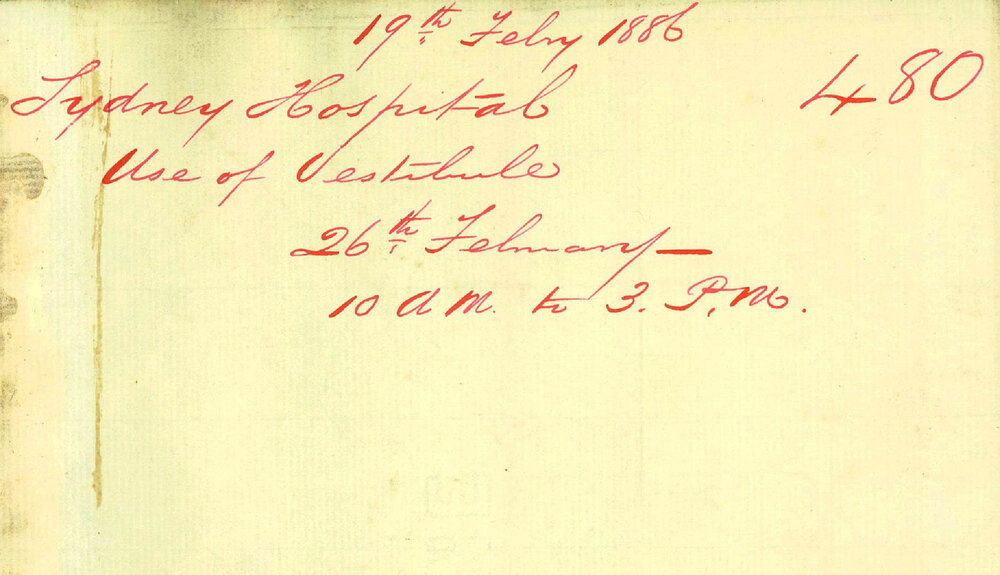 19th Febry 1886
480
Sydney Hospital
Use of Vestibule
26th February —
10 A M. to 3. P.M.